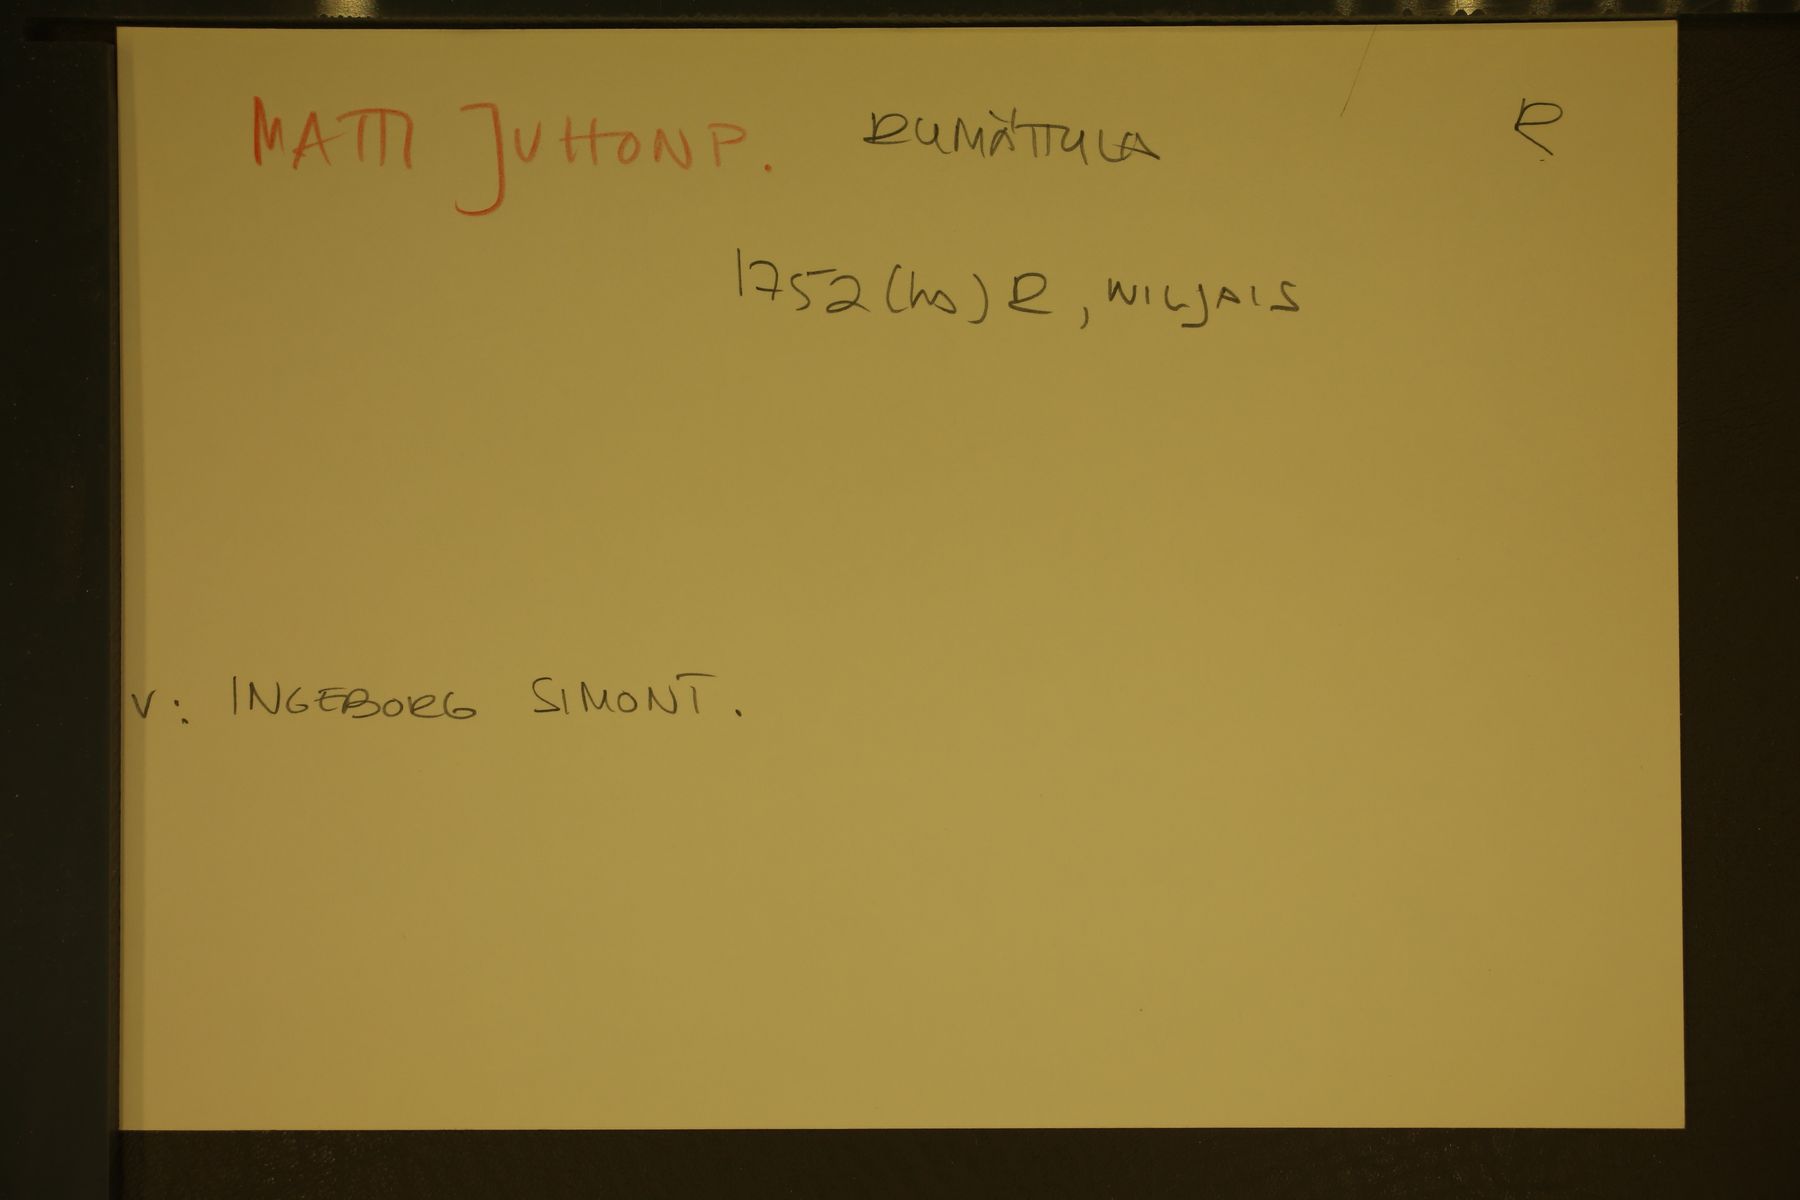 MATTI JUHONP. RUMÄTTULA R
1752 (ho) R, WILJAIS
V: INGEBORG SIMONT.